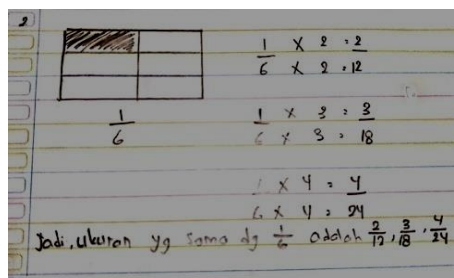 2
1/6 × 2 = 2
6 × 2 = 12
1/6
1 × 3 = 3
6 × 3 = 18
1 × 4 = 4
6 × 4 = 24
Jadi, ukuran yg sama dg 1/6 adalah 2/12, 3/18, 4/24